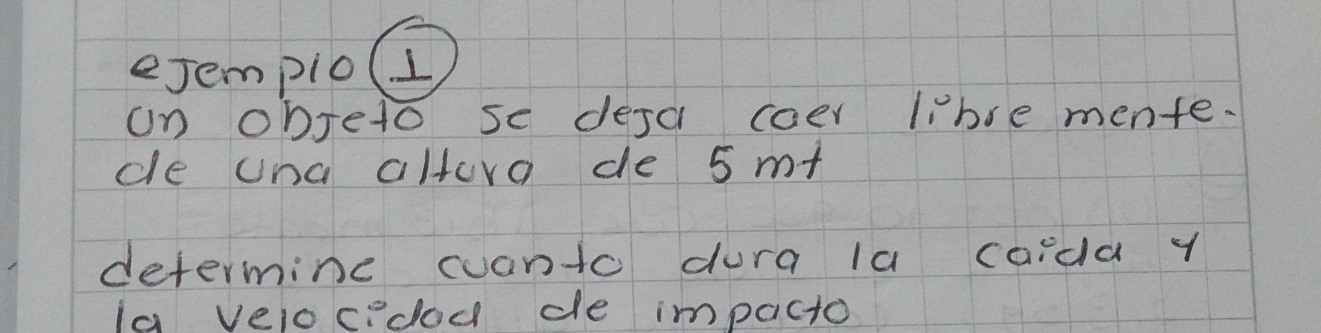 ejemplo 1
un objeto se deja caer libre mente.
de una altura de 5 mt
determine cuanto dura la caida y
la velocidad de impacto